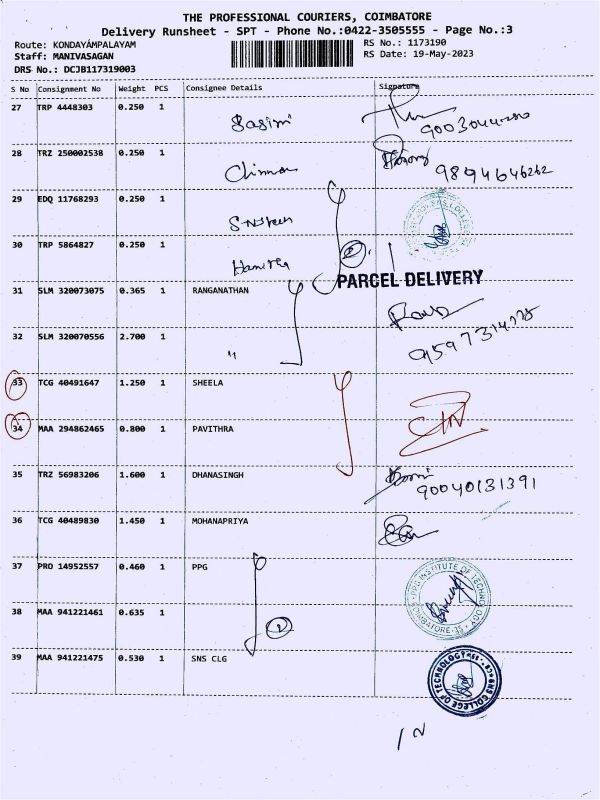 THE PROFESSIONAL COURIERS, COIMBATORE
Delivery Runsheet - SPT - Phone No.:0422-3505555 - Page No.:3
Route: KONDAYAMPALAYAM
RS No.: 1173190
Staff: MANIVASAGAN
RS Date: 19-May-2023
DRS No.: DCJB117319003
S No Consignment No Weight PCS Consignee Details Signature
27 TRP 4448303 0.250 1
28 TRZ 250002538 0.250 1
9894646262
29 EDQ 11768293 0.250 1
30 TRP 5864827 0.250 1 Hanitha
PARCEL DELIVERY
31 SLM 320073075 0.365 1 RANGANATHAN
32 SLM 320070556 2.700 1 "
33 TCG 40491647 1.250 1 SHEELA
34 MAA 294862465 0.800 1 PAVITHRA
35 TRZ 56983206 1.600 1 DHANASINGH
90040131391
36 TCG 40489830 1.450 1 MOHANAPRIYA
37 PRO 14952557 0.460 1 PPG
PPG INSTITUTE OF TECHNO
COIMBATORE-35
38 MAA 941221461 0.635 1
39 MAA 941221475 0.530 1 SNS CLG
SNS COLLEGE OF TECHNOLOGY
IN